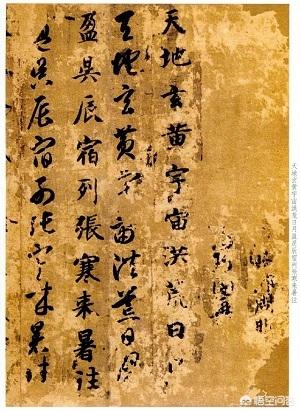 天地玄黄宇宙洪荒日月盈昃辰宿列張寒来暑往
天地玄黄宇宙洪荒日月
天地玄黄宇宙洪荒日月
盈昃辰宿列張寒来暑往
盈昃辰宿列張寒来暑往
悟空问答